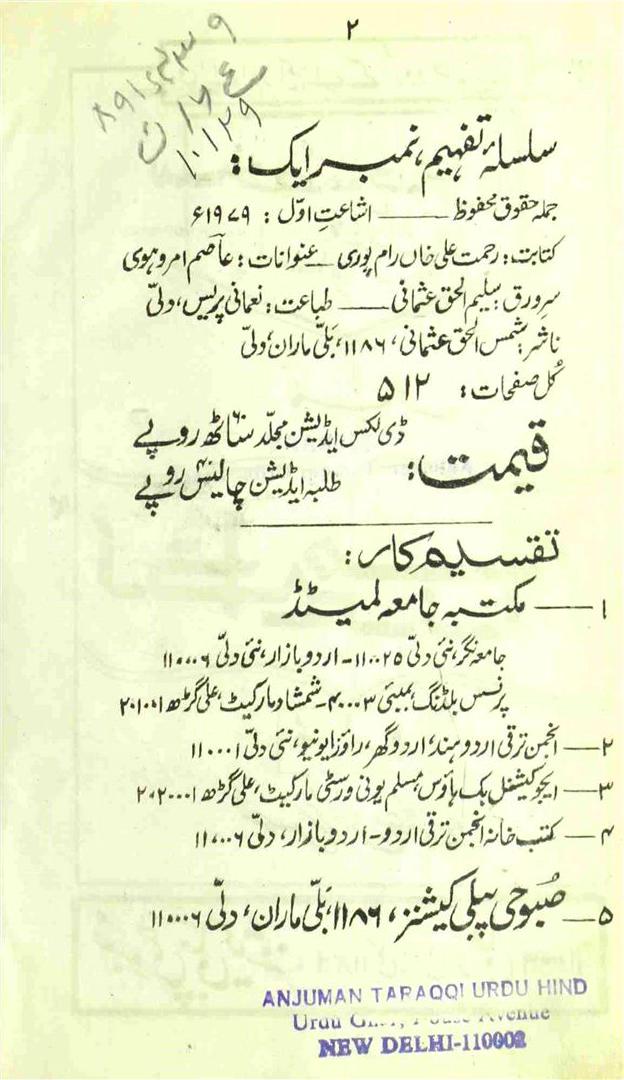 ۲
۸۹۱۵۴۳۹
ع ۱۷ ت
۱۰۱۲۹
سلسلۂ تفہیم، نمبر ایک:
جملہ حقوق محفوظ —— اشاعتِ اوّل: ۱۹۷۹ء
کتابت: رحمت علی خاں رام پوری — عنوانات: عاصم امروہوی
سرورق: سلیم الحق عثمانی —— طباعت: نعمانی پریس، دلّی
ناشر: شمس الحق عثمانی، ۱۱۸۶، بلّی ماران، دلّی
کُل صفحات: ۵۱۲
قیمت:
ڈی لکس ایڈیشن مجلّد ساٹھ ۶۰ روپے
طلبہ ایڈیشن چالیس ۴۰ روپے
تقسیم کار:
۱ —— مکتبہ جامعہ لمیٹڈ
جامعہ نگر، نئی دلّی ۱۱۰۰۲۵ - اردو بازار، نئی دلّی ۱۱۰۰۰۶
پرنسس بلڈنگ، بمبئی ۴۰۰۰۰۳ - شمشاد مارکیٹ، علی گڑھ ۲۰۱۰۰۱
۲ —— انجمن ترقی اردو ہند، اردو گھر، راؤز ایونیو، نئی دلّی ۱۱۰۰۰۱
۳ —— ایجوکیشنل بک ہاؤس، مسلم یونی ورسٹی مارکیٹ، علی گڑھ ۲۰۲۰۰۱
۴ — کتب خانہ انجمن ترقی اردو - اردو بازار، دلّی ۱۱۰۰۰۶
۵ — صُبوحی پبلی کیشنز، ۱۱۸۶، بلّی ماران، دلّی ۱۱۰۰۰۶
ANJUMAN TARAQQI URDU HIND
Urdu Avenue
NEW DELHI-110002